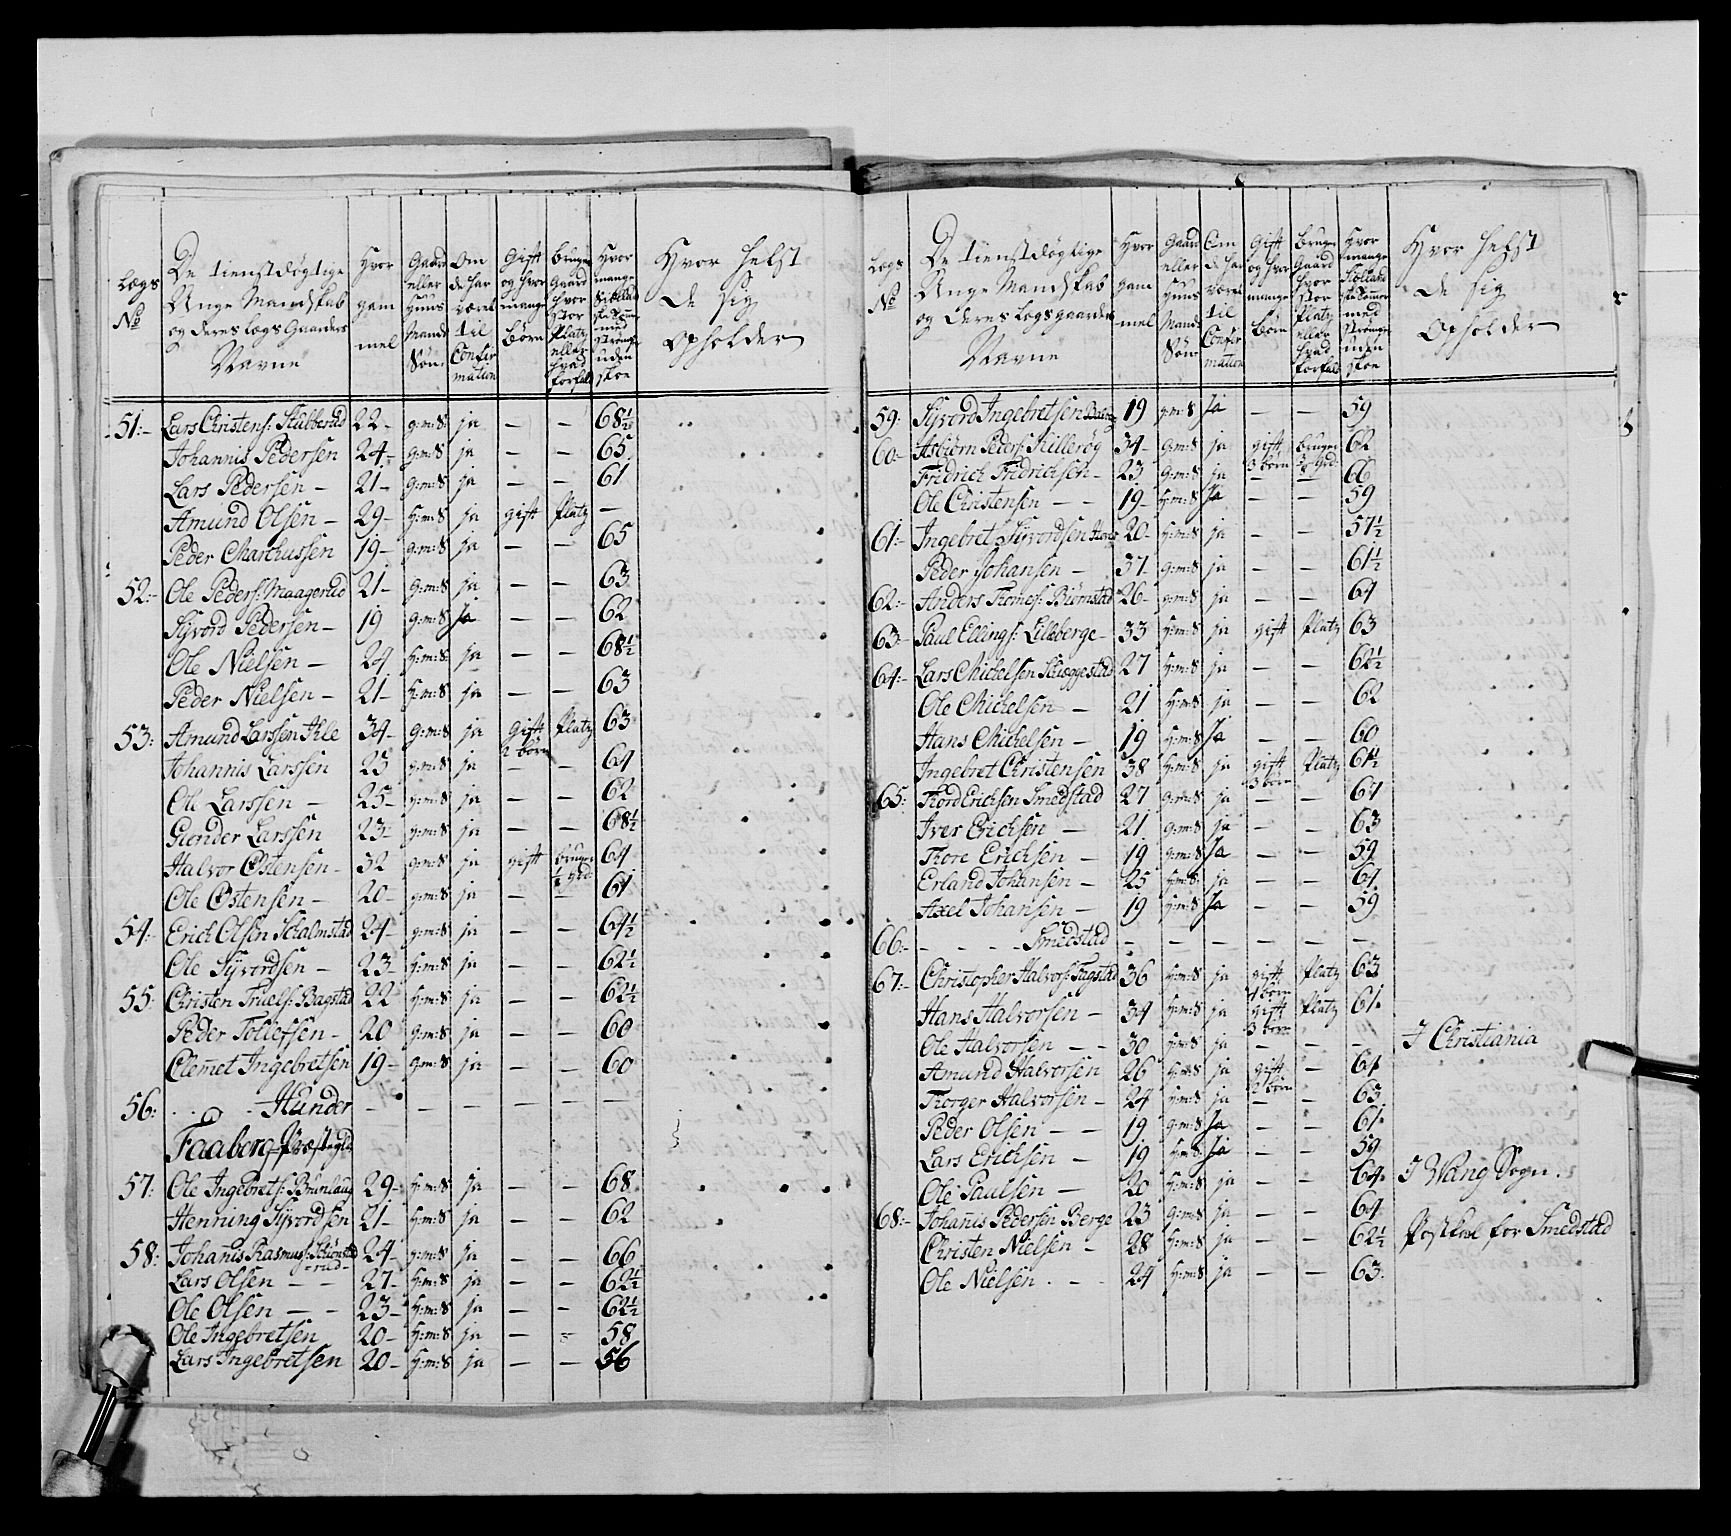 Lægs No
De tienstdøgtige Unge Mandskab og deres Legs Gaarders Navne
Hvor gammel
Gaard eller Huus Mands Søn
Om de har været til Confirmation
Gift og hvor mange Børn
bruger Gaard hvor stor Platz eller hvad forfald
Hvor mange
med strømper uden skoe
Hvor helst de sig opholder
51:- Lars Christens: Stubberud 22- g:m:S ja - - 68½
Johannis Pedersen 24- g:m:S ja - - 65
Lars Pedersen - 21- g:m:S ja - - 61
Amund Olsen - 29- h:m:S ja gift Platz -
Peder Marthussen 19- g:m:S ja - - 65
52:- Ole Peders: Maagerud 21- g:m:S ja - - 63
Sÿvord Pedersen - 19 g:m:S Ja - - 62
Ole Nielsen - 24 h:m:S ja - - 68½
Peder Nielsen - 21- h:m:S ja - - 63
53: Amund Larssen Ihle 34- g:m:S ja gift 2 børn Platz 63
Johannis Larssen 23 g:m:S ja - - 64
Ole Larssen - 25- g:m:S ja - - 62
Gunder Larssen 23- g:m:S ja - - 68½
Halvor Ostensen - 32 g:m:S ja gift bruger ½ grd: 64
Ole Ostensen - 20- g:m:S ja - - 61
54:- Erich Olsen Schalmstad 24- g:m:S ja - - 64½
Ole Sÿvordsen - 23- h:m:S ja - - 62½
55: Christen Truels: Bagstad 22- h:m:S ja - - 62½
Peder Tollefsen - 20 g:m:S ja - - 60
Clemet Ingebretsen 19- g:m:S ja - - 60
56: - - Hunder - - - - - -
Faaberg Præstegld
57: Ole Ingebrets: Brunlaug 29- h:m:S ja - - 68
Henning Sÿvordsen 21- h:m:S ja - - 62
58: Johanis Rasmus: Schönstad 24- h:m:S ja - - 66
Lars Olsen - - 27- h:m:S ja - - 62½
Ole Olsen - - 23- h:m:S ja - - 62½
Ole Ingebretsen 20- h:m:S ja - - 58
Lars Ingebretsen 20- h:m:S ja - - 56
Lægs No
De tienstdøgtige Unge Mandskab og deres Legs gaarders Navne
Hvor gammel
Gaard eller Huus Mands Søn
Om de har været til Confirmation
Gift og hvor mange Børn
bruger Gaard hvor stor Platz eller hvad forfald
Hvor mange
med strømper uden skoe
Hvor helst de sig Opholder
59: Sÿvord Ingebretsen 19 g:m:S Ja - - 59
60:- Asbiørn Peders: Killerøg 34- g:m:S ja gift 3 børn bruger grd: 62
Fridrich Fridrichsen - 23 g:m:S ja - - 66
Ole Christensen - - 19- h:m:S Ja - - 59
61:- Ingebret Sÿvordsen 20- h:m:S ja - - 57½
Peder Johansen - 31 g:m:S ja - - 61½
62:- Anders Thomes: Biørnstad 26- g:m:S ja - - 64
63:- Paul Ellings: Lilleberge- 33 h:m:S ja gift Platz 63
64:- Lars Michelsen Skieggestad 27 h:m:S ja - - 62½
Ole Michelsen - 21 h:m:S ja - - 62
Hans Michelsen - 19 h:m:S Ja - - 60
Ingebret Christensen 38 h:m:S ja gift 3 børn Platz 61½
65: Thord Erichsen Smedstad 27 g:m:S ja - - 64
Iver Erichsen - 21 g:m:S ja - - 63
Thore Erichsen - 19 g:m:S Ja - - 59
Erland Johansen - 25 h:m:S ja - - 61
Axel Johansen - 19 h:m:S Ja - - 59
66:- - - - - Smedstad - - - - - -
67:- Christopher Halvors: Fagstad 36 h:m:S ja gift 4 børn Platz 63
Hans Halvorsen - 34 h:m:S ja gift 3 børn Platz 61
Ole Halvorsen - - 30 h:m:S ja - - - I Christiania
Amund Halvorsen 26 h:m:S ja gift 2 børn - 61
Thorger Halvorsen - 24 h:m:S ja - - 63
Peder Olsen - - 19 g:m:S Ja - - 61
Lars Erichsen - 19 h:m:S Ja - - 59
Ole Paulsen - 20 h:m:S ja - - 64 I Wang Sogn
68:- Johanis Pedersen Berge 23 g:m:S ja - - 64
Christen Nielsen - 28 h:m:S ja - - 62½ Postkal for Smedstad
Ole Nielsen - - 24 h:m:S ja - - 63